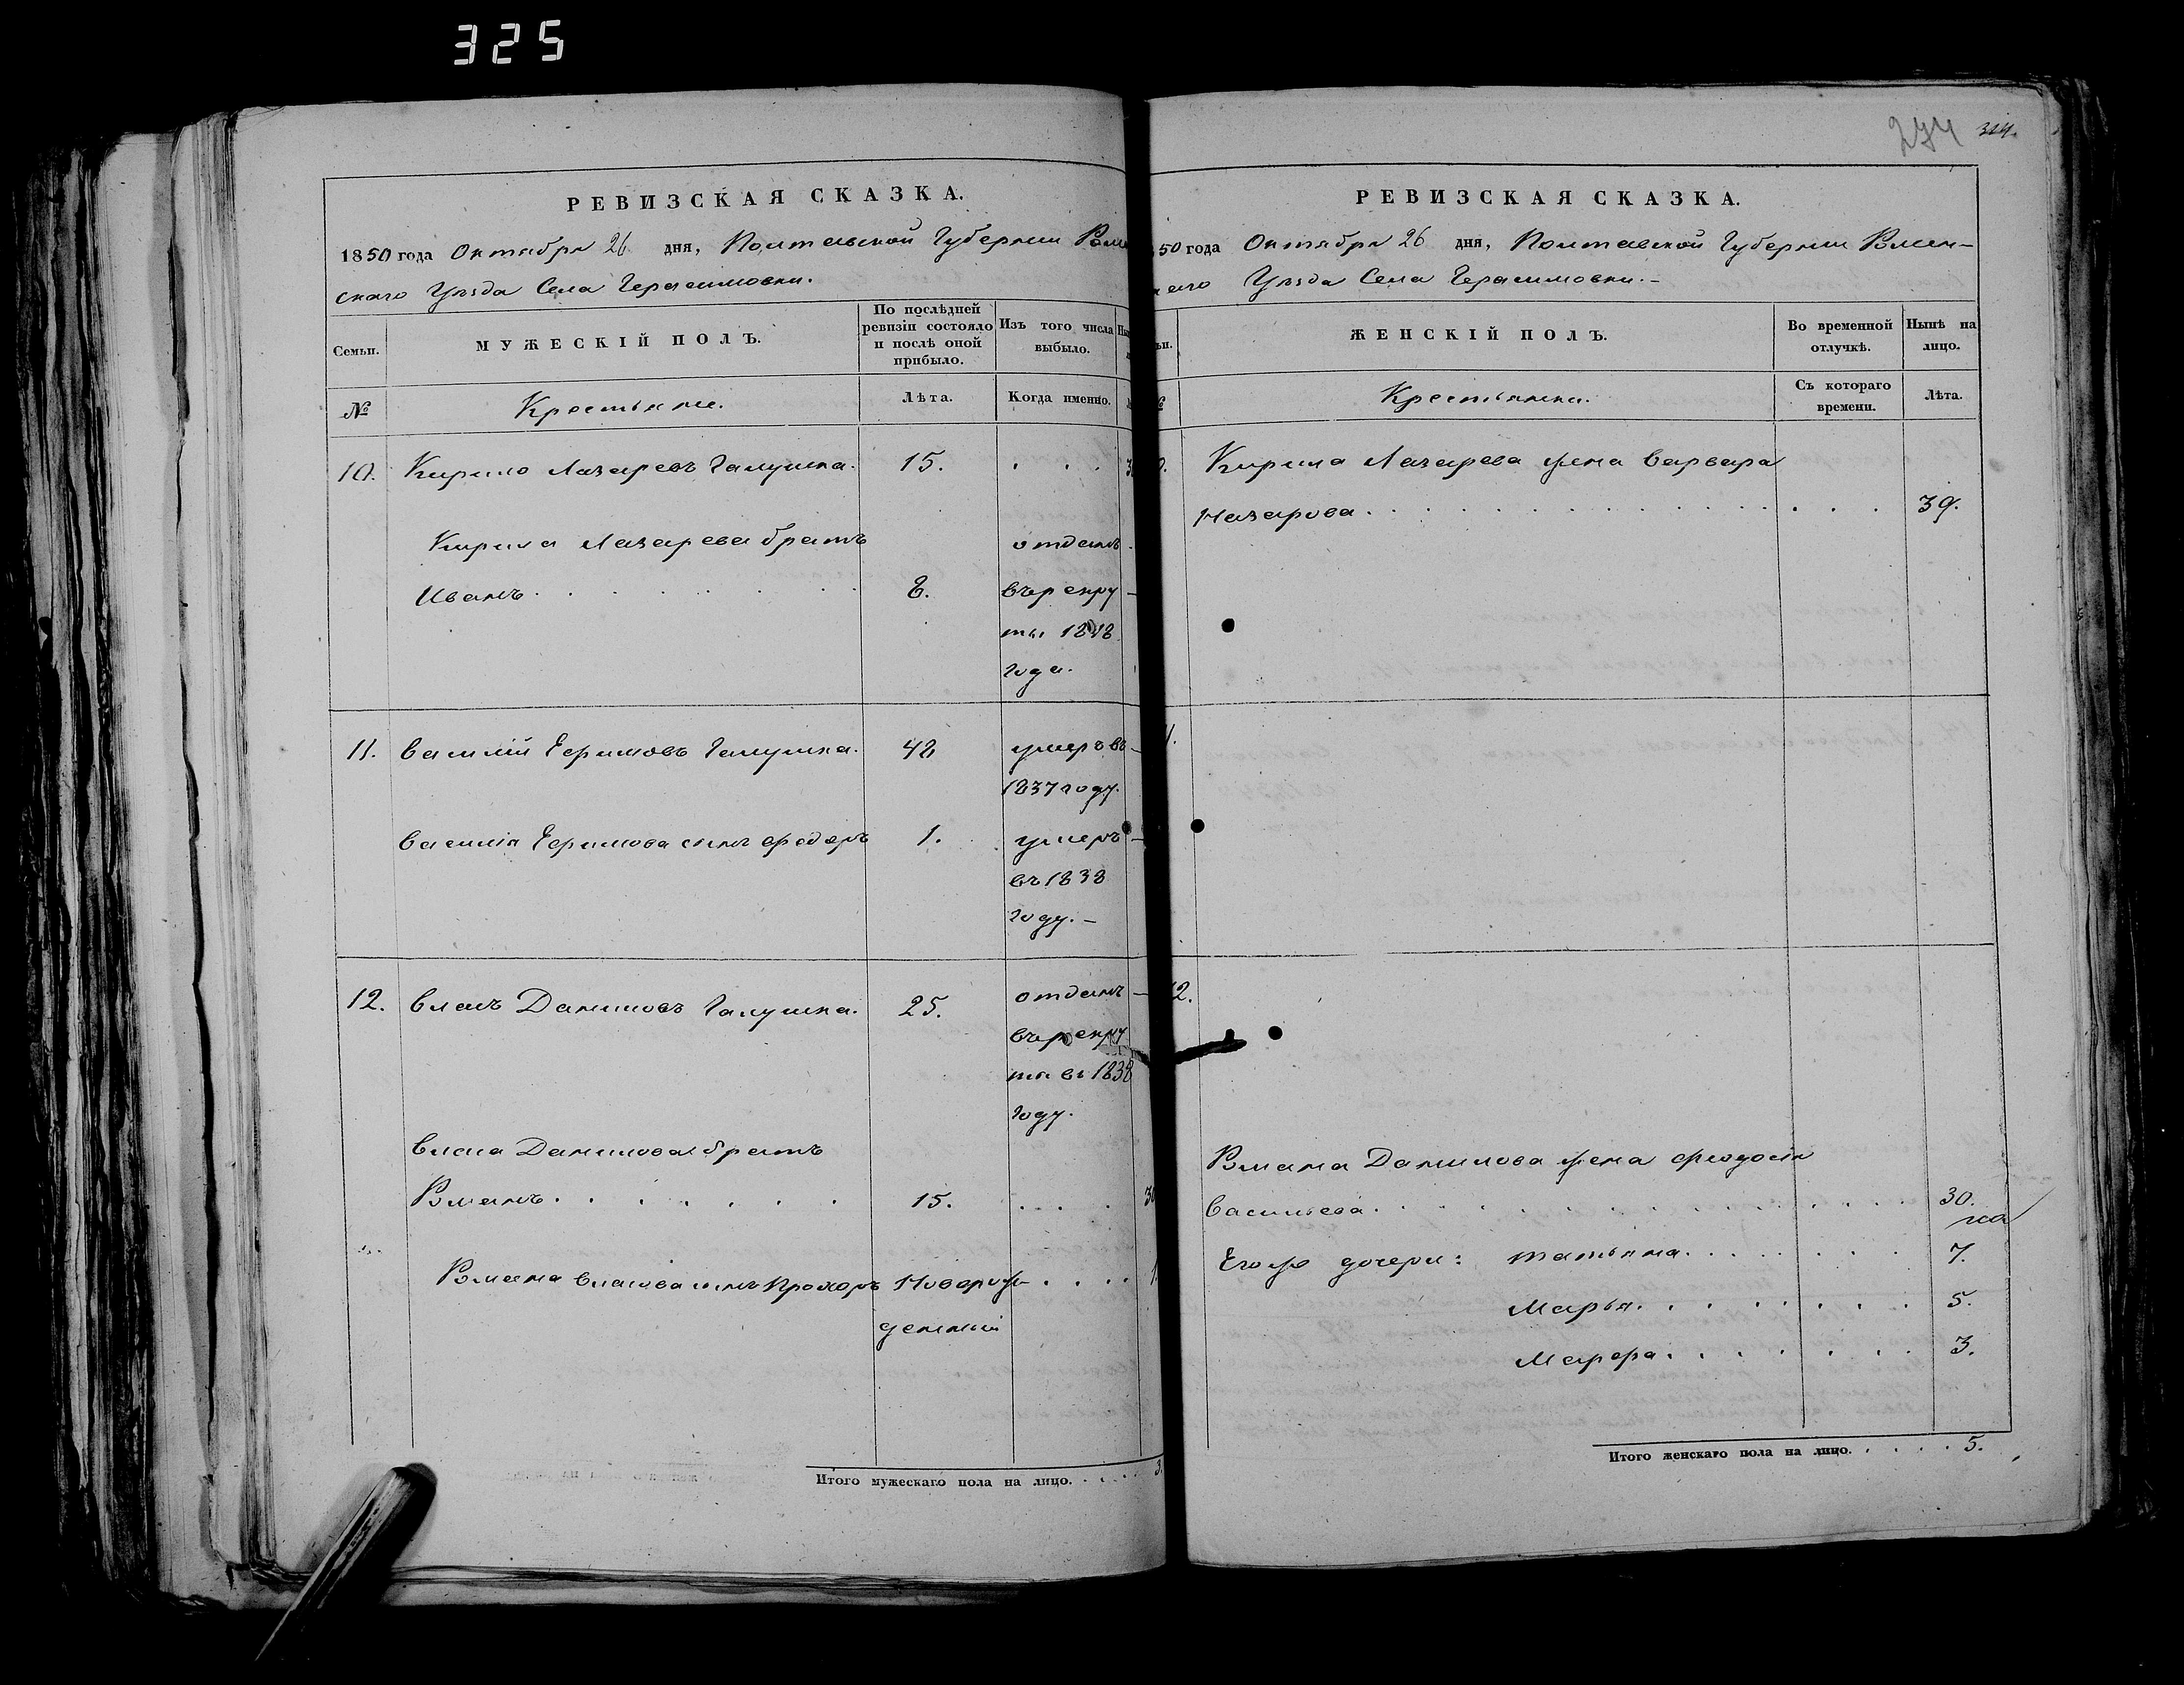 325
274 314.
РЕВИЗСКАЯ СКАЗКА.
1850 года Октября 26 дня, Полтавской Губернии Роме
скаго Уѣзда Села Герасимовки.
Семьи.
МУЖЕСКІЙ ПОЛЪ.
По послѣдней
ревизіи состояло
и послѣ оной
прибыло.
Изъ того числа
выбыло.
№
Крестьяне.
Лѣта.
Когда именно.
10. Кирило Лазаревъ Галушка. 15. . . .
Кирила Лазарева братъ отданъ
Иванъ . . . . . . . 8. въ рекру
ты 1848
года.
11. Василій Ефимовъ Галушка. 42 умеръ въ
1837 году.
Василія Ефимова сынъ Федоръ 1. умеръ
въ 1838
году. –
12. Власъ Даниловъ Галушка. 25. отданъ –
въ рекру
та въ 1838
году.
Власа Данилова братъ
Романъ . . . . . . . 15. . . . .
Романа Власова сынъ Прохоръ Новорож . . . .
денный
Итого мужескаго пола на лицо. . . . . 3.
РЕВИЗСКАЯ СКАЗКА.
50 года Октября 26 дня, Полтавской Губернии Ромен–
Уѣзда Села Герасимовки. –
ЖЕНСКІЙ ПОЛЪ.
Во временной
отлучкѣ.
Нынѣ на
лицо.
Крестьянки.
Съ котораго
времени.
Лѣта.
Кирила Лазарева жена Варвара
Назарова . . . . . . . . . . . . . . . 39.
Романа Данилова жена Феодосія
Васильева . . . . . . . . . . . . . . . 30.
Егожъ дочери: Татьяна . . . . . . . 7.
Марья . . . . . . . . 5.
Марфа . . . . . . . . 3.
Итого женскаго пола на лицо. . . . . 5.